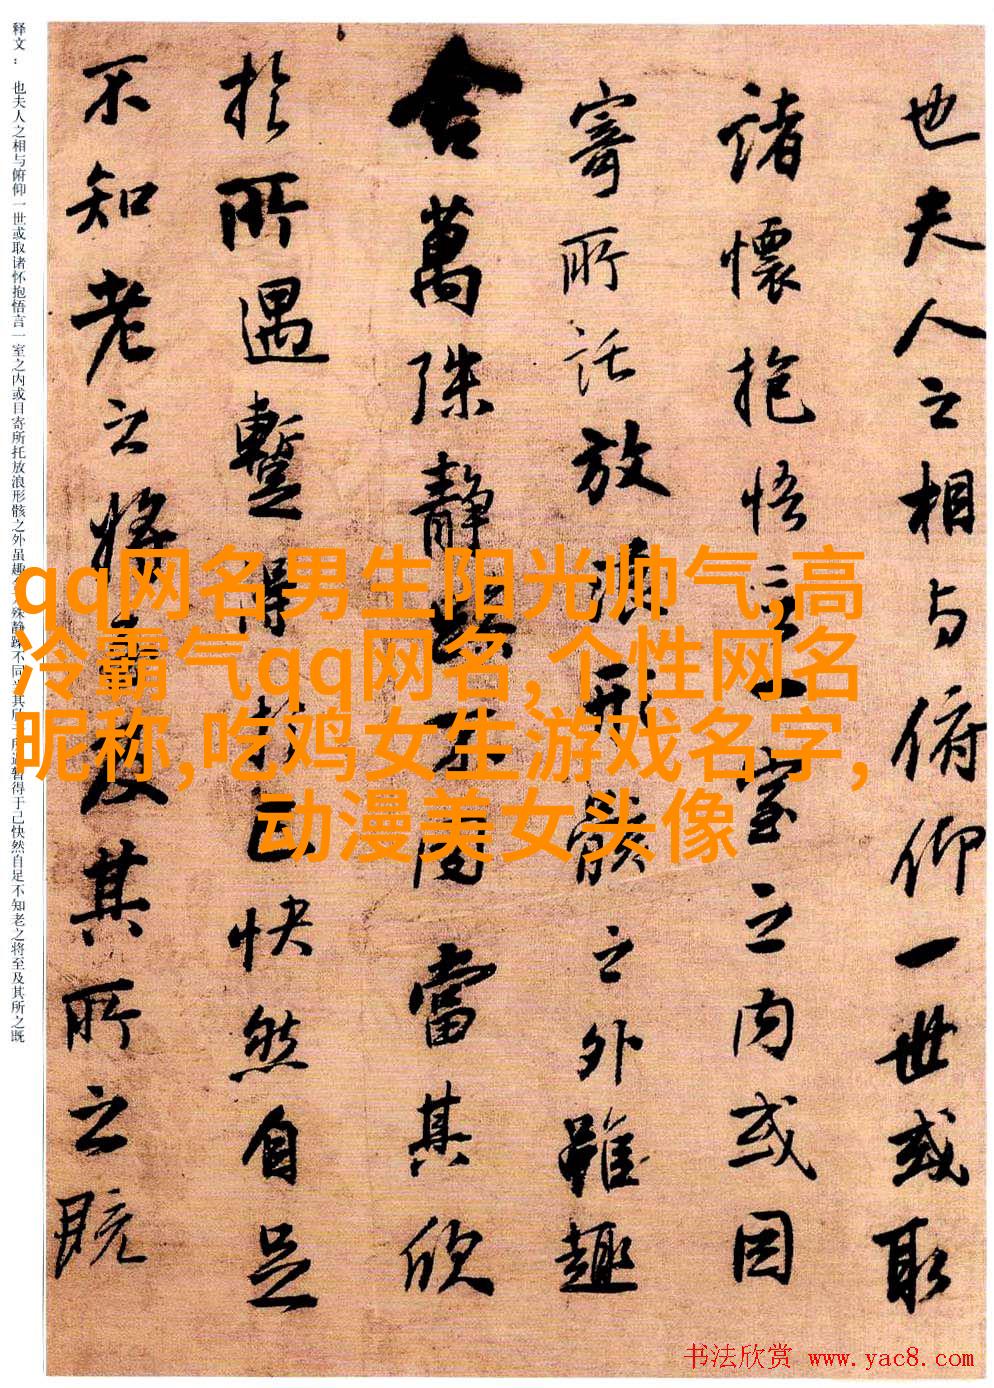 也夫人之相与俯仰一世或取
諸懷抱悟言一室之内或因
寄所託放浪形骸之外雖趣
舍萬殊静躁不同當其欣
於所遇蹔得於己快然自足
不知老之將至及其所之既
释文： 也夫人之相与俯仰一世或取诸怀抱悟言一室之内或目寄所托放浪形骸之外虽趣殊静躁不同当其欣所遇暂得于己快然自足不知老之将至及其所之既
qq网名男生阳光帅气,高
冷霸气qq网名,个性网名
昵称,吃鸡女生游戏名字,
动漫美女头像
书法欣赏 www.yac8.com